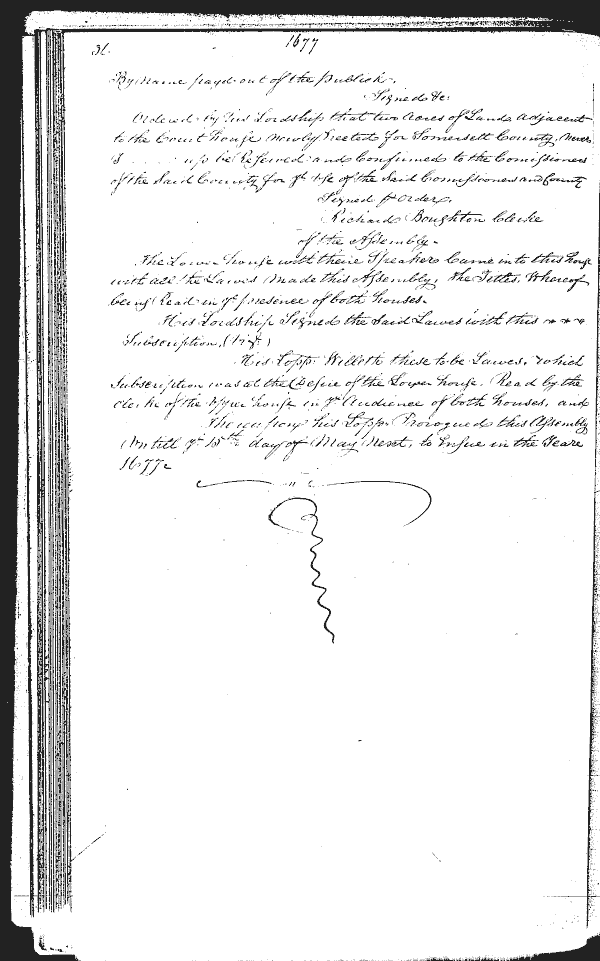 1677
By name payd out of the publick.
Signed &c:
Ordered by his Lordship that two Acres of Land adjacent
to the Court house newly Erected for Somersett County
up be Reserved and Confirmed to the Comissioners
of the said County for ye Use of the said Comissioners and County
Signed p order.
Richard Boughton Clerke
of the Assembly.
The Lower house with theire Speakers Came into this house
with all the Lawes made this Assembly, the Titles, Whereof
being Read in ye presence of both houses.
His Lordship Signed the said Lawes with this
Subscription, (vizt.)
His Lopp: Willeth these to be Lawes, which
Subscription was at the Desire of the Lower house. Read by the
clerke of the Upper house in ye Audience of both houses, and
thereupon his Lopp: Prorogued this Assembly
Untill ye 15th day of May Next, to Ensue in the Yeare
1677.